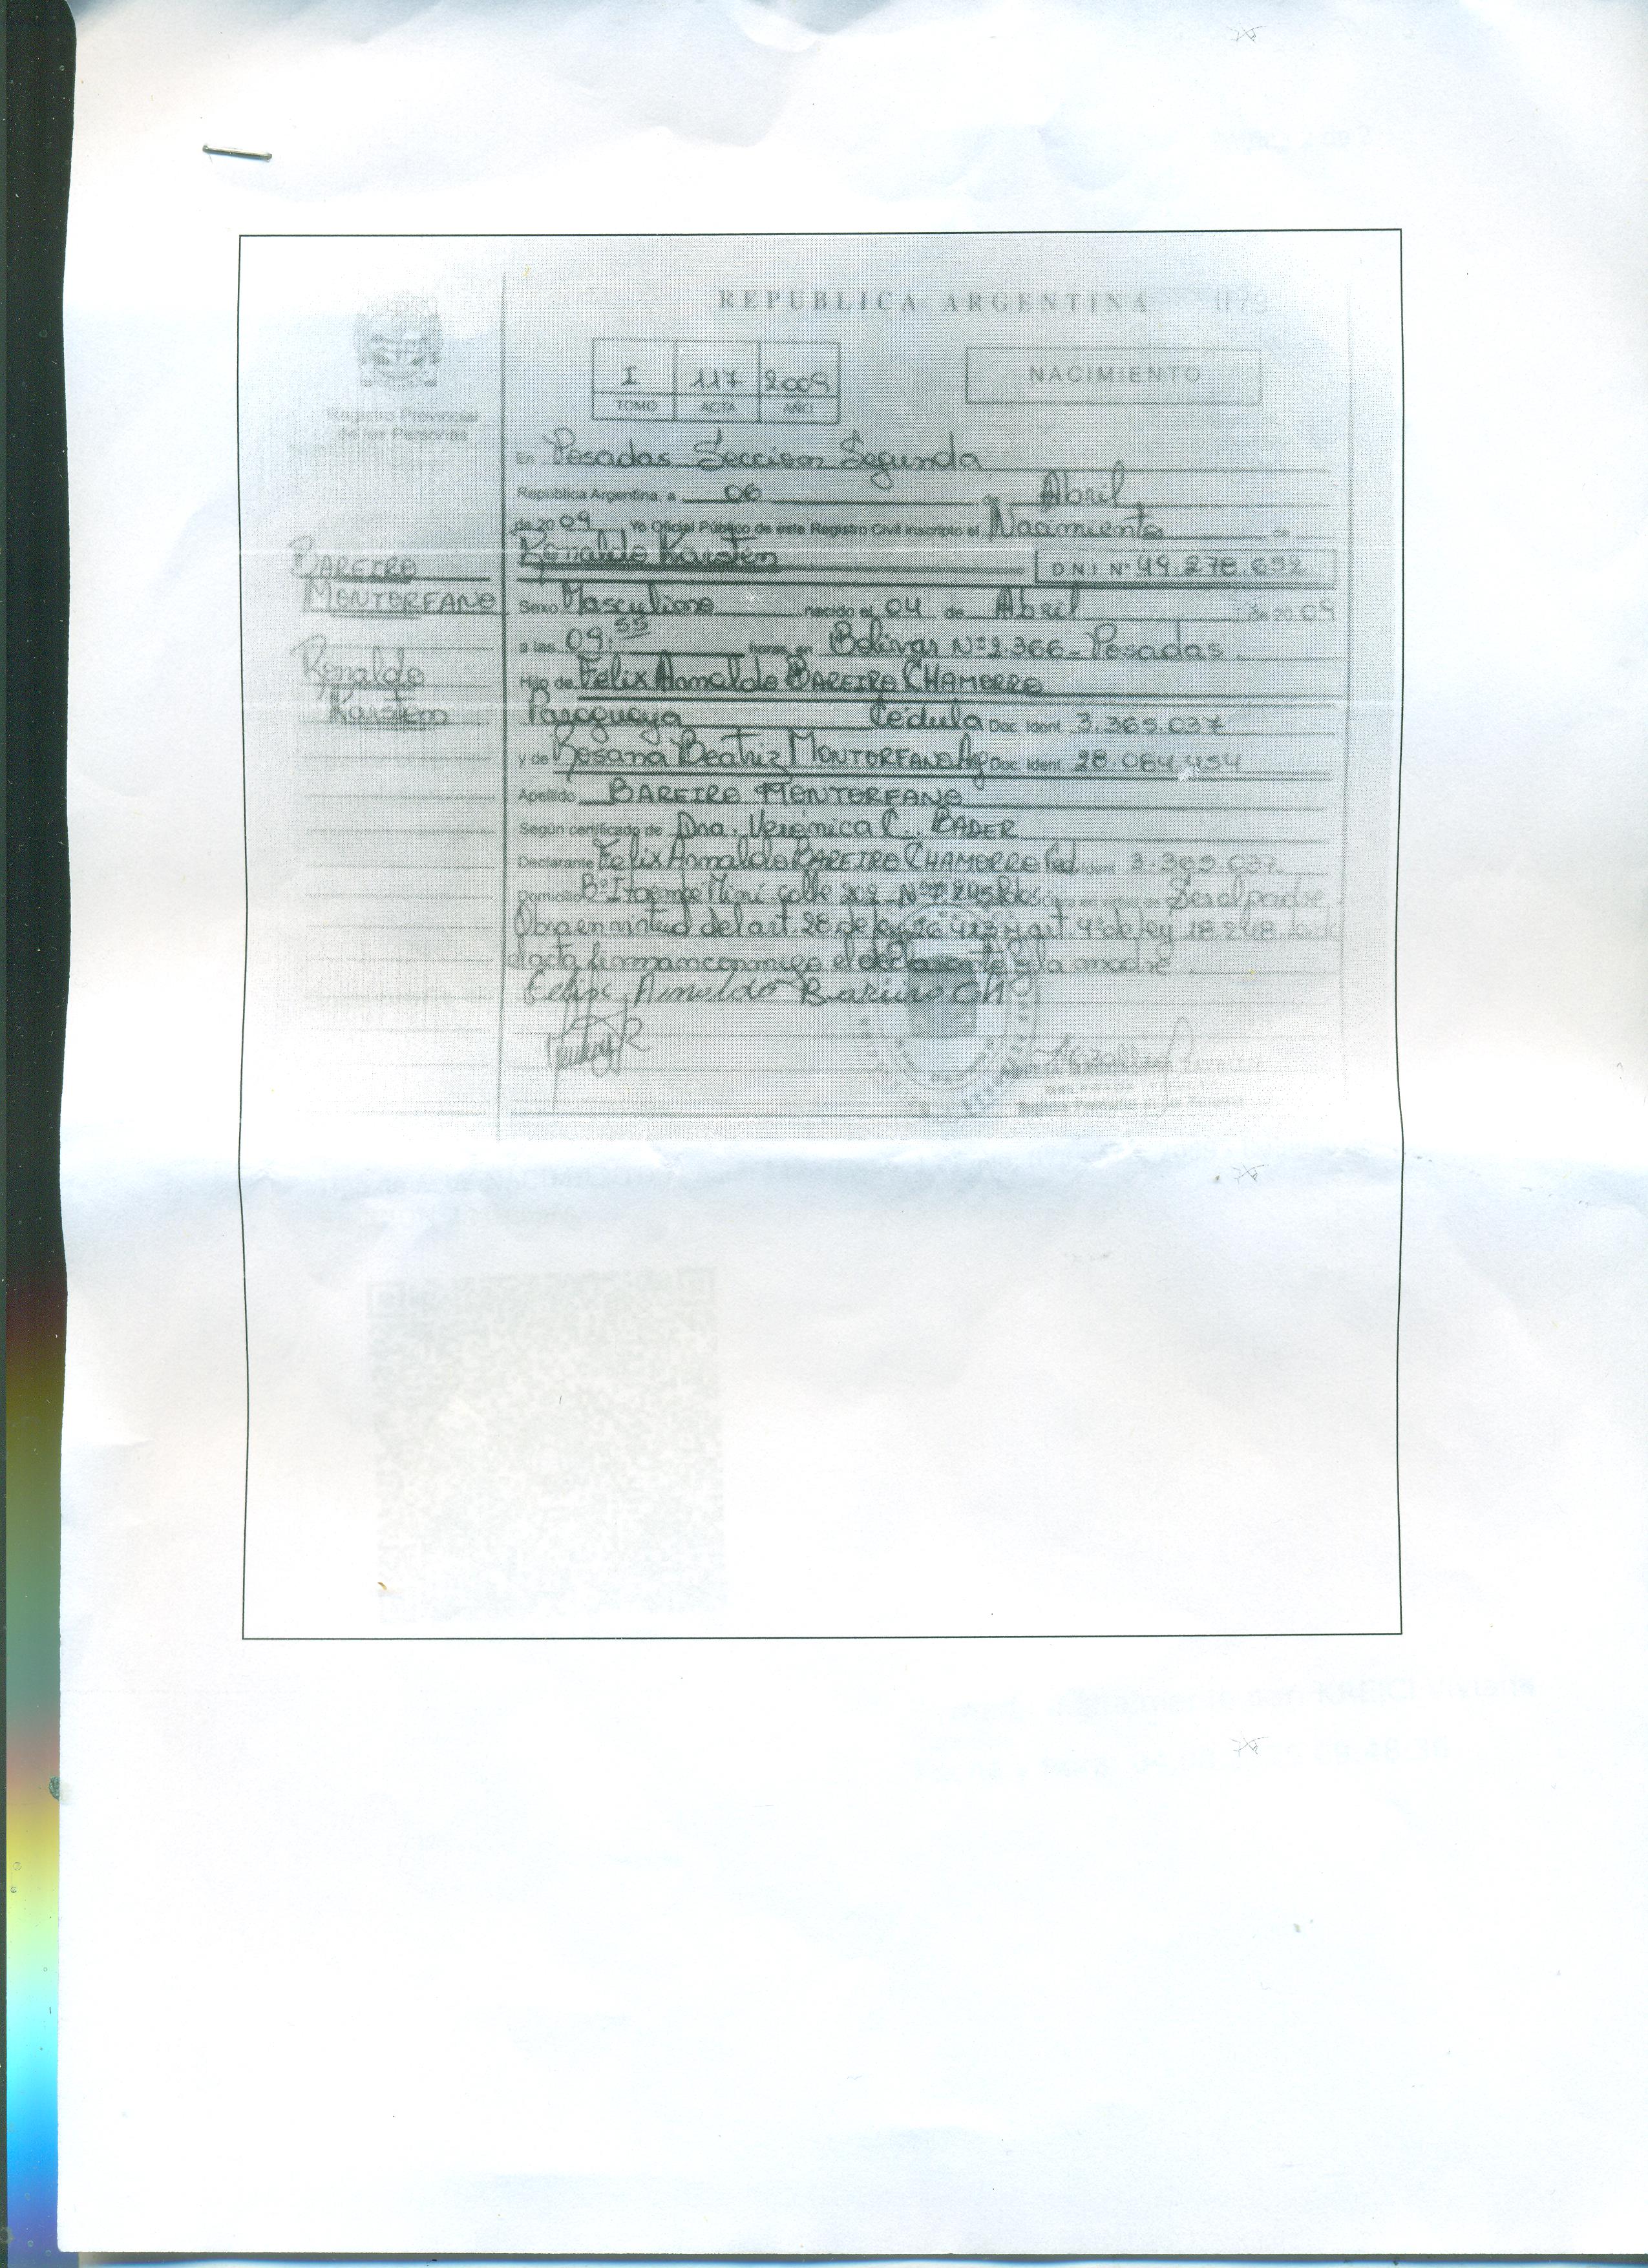 REPUBLICA ARGENTINA
Registro Provincial
de las Personas
I 117 2009
TOMO ACTA AÑO
NACIMIENTO
En Posadas Seccion Segunda
República Argentina, a 06 de Abril
de 2009 Yo Oficial Público de este Registro Civil inscripto el Nacimiento de
Ronaldo Karsten
D N I Nº 49.278.632
BAREIRO
MONTORFANO
Ronaldo
Karsten
Sexo Masculino nacido el 04 de Abril de 2009
a las 09:55 horas, en Bolivar Nº 2.366 - Posadas.
Hijo de Felix Arnaldo BAREIRO CHAMORRO
Paraguaya Cédula Doc. Ident. 3.365.037
y de Rosana Beatriz MONTORFANO Ag Doc. Ident. 28.084.454
Apellido BAREIRO MONTORFANO
Según certificado de Dra. Verónica C. BADER
Declarante Felix Arnaldo BAREIRO CHAMORRO Ced. Ident. 3.365.037
Domicilio Bº Itaembé Miní calle 202 Nº 7245 Pdas Obra en virtud de Ser el padre
Obra en virtud del art. 28 de ley 26.413 y art. 4º de ley 18.248.
el acta firman conmigo el declarante y la madre
Felix Arnaldo Bareiro Ch